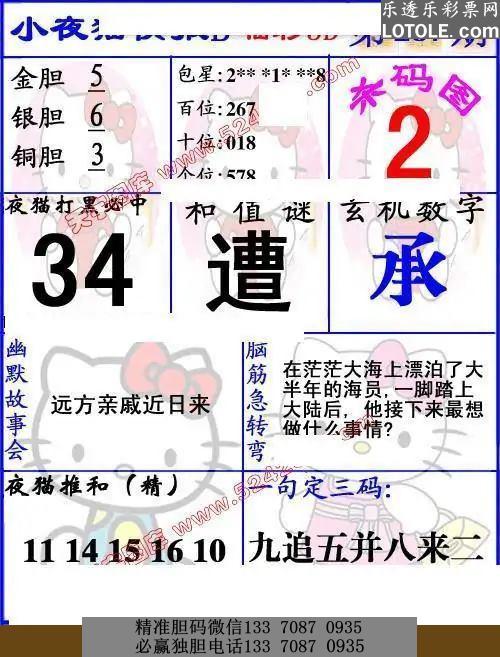 乐透乐彩票网
LOTOLE.COM
小夜猫
3D
第
期
金胆 5
银胆 6
铜胆 3
包星: 2** *1* **8
百位: 267
十位: 018
个位: 578
来码图
2
夜猫打黑必中
34
和值谜
遭
玄机数字
承
幽默故事会
远方亲戚近日来
脑筋急转弯
在茫茫大海上漂泊了大
半年的海员,一脚踏上
大陆后，他接下来最想
做什么事情?
夜猫推和（精）
11 14 15 16 10
一句定三码:
九追五并八来二
精准胆码微信133 7087 0935
必赢独胆电话133 7087 0935